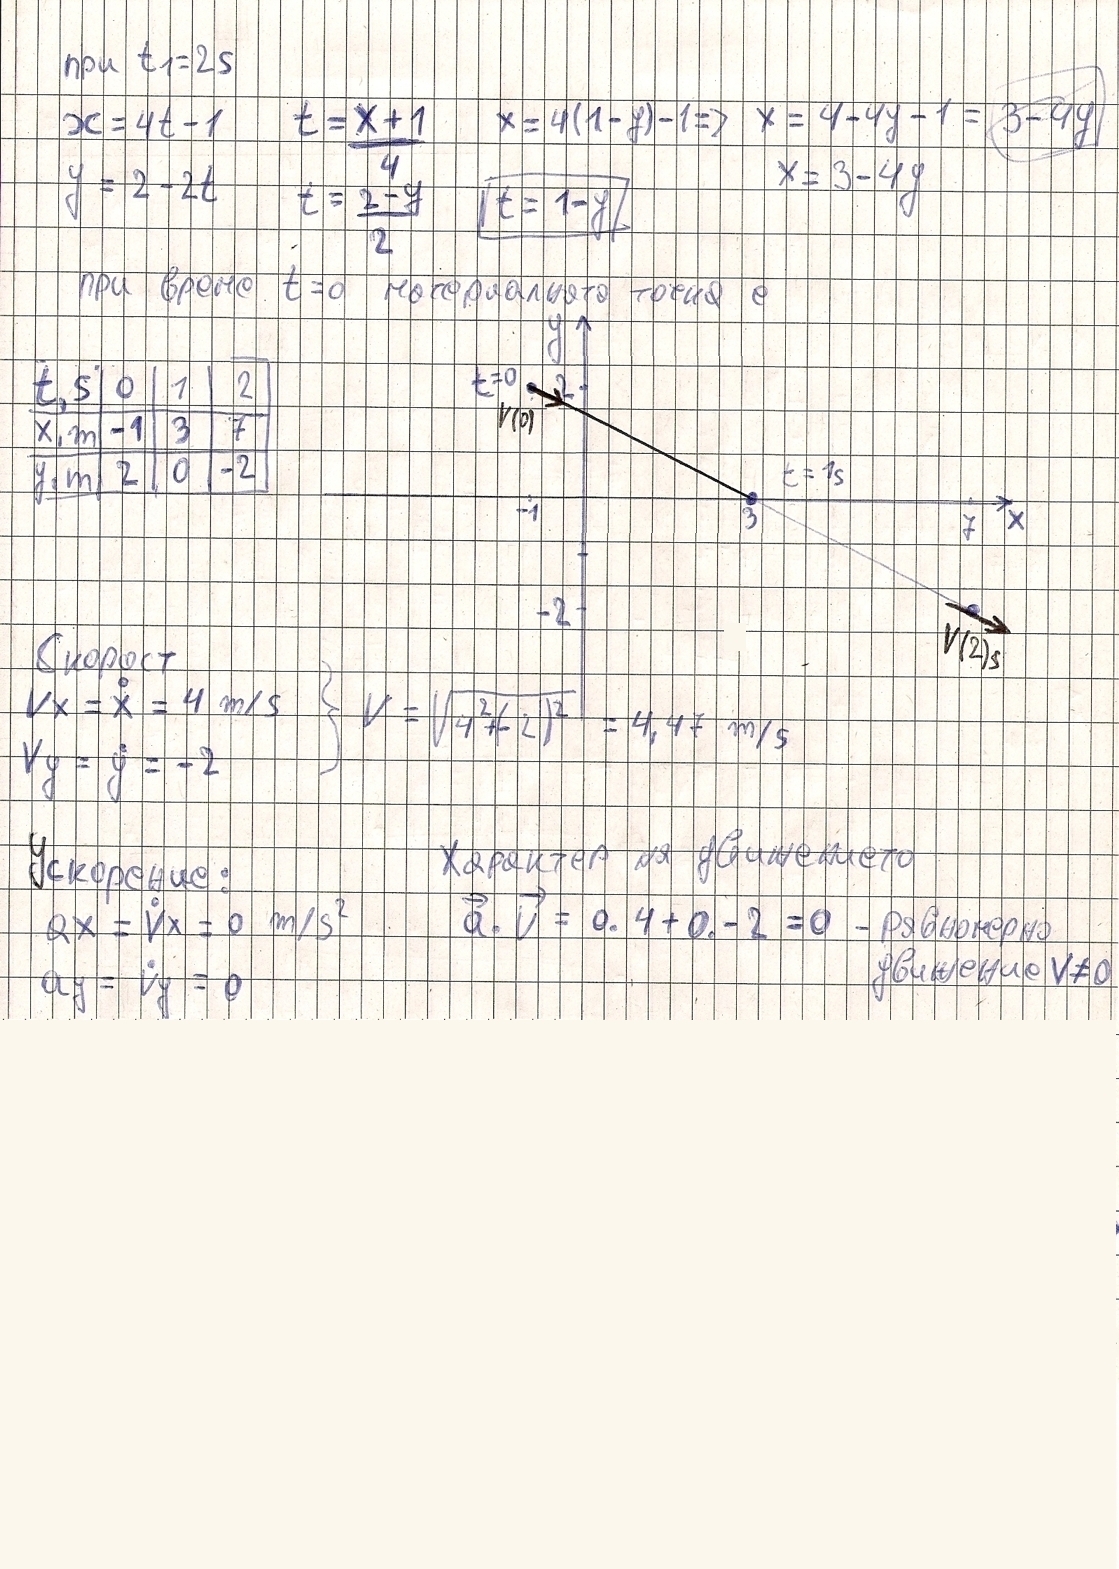 при t₁=2s
x = 4t-1 t = x+1/4 x = 4(1-y)-1 => x = 4-4y-1 = 3-4y
y = 2-2t t = 2-y/2 t = 1-y x = 3-4y
при време t=0 материалната точка е
y
t,s 0 1 2
x,m -1 3 7
y,m 2 0 -2
t=0 2
V(0)
t=1s
-1 3 7 x
-2
V(2)s
Скорост
Vx = ẋ = 4 m/s V = √4²+(-2)² = 4,47 m/s
Vy = ẏ = -2
Ускорение: Характер на движението
ax = V̇x = 0 m/s² a⃗.V⃗ = 0.4+0.-2 = 0 - равномерно
ay = V̇y = 0 движение V≠0